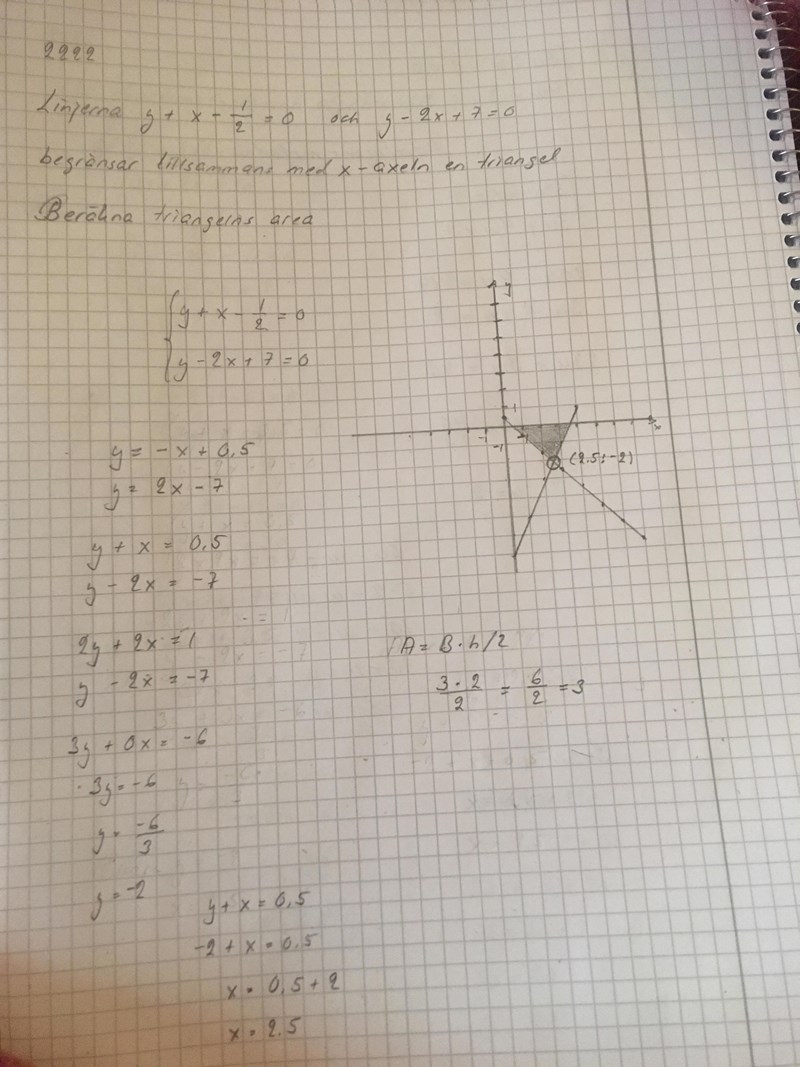 2222
Linjerna y + x - 1/2 = 0 och y - 2x + 7 = 0
begränsar tillsammans med x-axeln en triangel
Beräkna triangelns area
y + x - 1/2 = 0
y - 2x + 7 = 0
y
x
1
-1
1
-1
(2.5; -2)
y = -x + 0,5
y = 2x - 7
y + x = 0,5
y - 2x = -7
2y + 2x = 1
y - 2x = -7
3y + 0x = -6
3y = -6
y = -6/3
y = -2
A = B·h/2
3·2/2 = 6/2 = 3
y + x = 0,5
-2 + x = 0.5
x = 0,5 + 2
x = 2,5